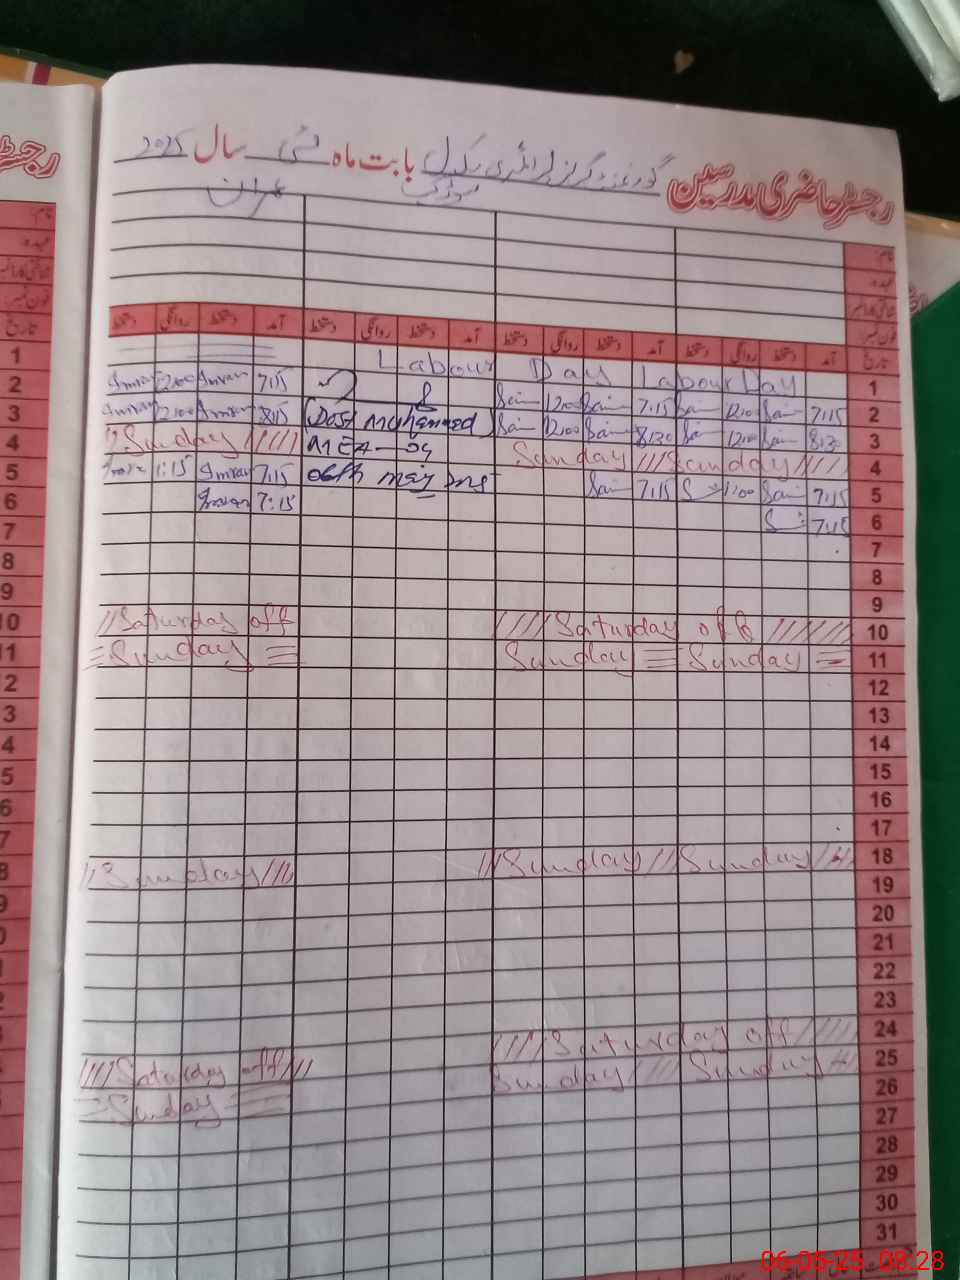 رجسٹر حاضری مدرسین گورنمنٹ گرلز پرائمری سکول بابت ماہ مئی سال 2025
عمران
نام:
عہدہ:
شناختی کارڈ نمبر
فون نمبر:
تاریخ آمد دستخط روانگی دستخط آمد دستخط روانگی دستخط آمد دستخط روانگی دستخط آمد دستخط روانگی دستخط
1 Labour Day Labour Day 1
2 Imran 12:00 Imran 7:15 12:00 7:15 12:00 7:15 2
3 Imran 12:00 Imran 8:15 (Dost Muhammad) 12:00 8:30 12:00 8:30 3
4 Sunday MEA-04 Sunday Sunday 4
5 1:15 Imran 7:15 06th may 7:15 1:00 7:15 5
6 Imran 7:15 7:15 6
7 7
8 8
9 9
10 Saturday off Saturday off 10
11 Sunday Sunday Sunday 11
12 12
13 13
14 14
15 15
16 16
17 17
18 Sunday Sunday Sunday 18
19
20
21
22
23
24 Saturday off
25 Saturday off Sunday Sunday
26 Sunday
27
28
29
30
31
06-05-25 08:28